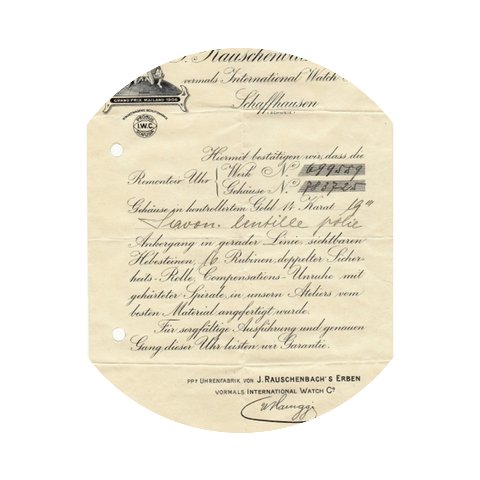 J. Rauschenba
vormals International Watch
Schaffhausen
(SCHWEIZ)
GRAND PRIX MAILAND 1906
I.W.C.
Hiermit bestätigen wir, dass die
Remontoir Uhr { Werk Nº 699559
Gehäuse Nº 783725
Gehäuse in kontrollertem Gold 14 Karat 19'''
Savon. lentille polie
Ankergang in gerader Linie, sichtbaren
Hebesteinen, 16 Rubinen, doppelter Sicher-
heits-Rolle, Compensations-Unruhe mit
gehärteter Spirale, in unsern Ateliers vom
besten Material angefertigt wurde.
Für sorgfältige Ausführung und genauen
Gang dieser Uhr leisten wir Garantie.
PPª UHRENFABRIK VON J. RAUSCHENBACH'S ERBEN
VORMALS INTERNATIONAL WATCH Cº